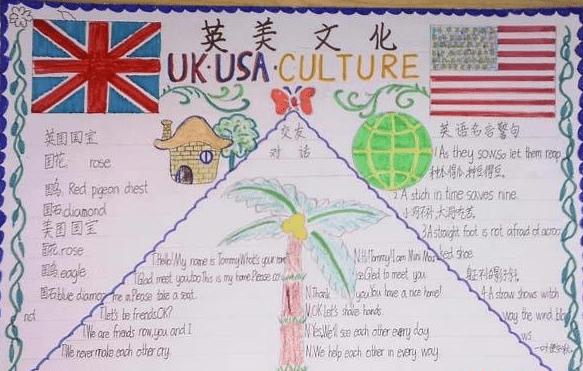 英美文化
UK·USA·CULTURE
英国国宝
国花. rose
国鸟. Red pigeon chest
国石.diamond
美国国宝
国花.rose
国鸟.eagle
国石.blue diamor
交友
对话
T.hello! My name is Tommy.What's your nam
T.Glad meet you.too.This is my home.Please co
me in.Please take a seat.
T.let's be friends.OK?
T.We are friends now,you and I
T.We never make each other cry.
N.Hi!Tommy!I am Mini Mou
se.Gled to meet you.
N.Thank you.You have a nice home!
N.OK.Let's shake hands.
N.Yes.We'll see each other every day.
N.We help each other in every way.
英语名言警句
1 As they sow,so let them reap
种瓜得瓜,种豆得豆。
2.A stich in time saves nine.
小洞不补,大洞吃苦。
3.A straight foot is not afraid of acroo
ked shoe.
4.A straw shows witch
way the wind blo
ws